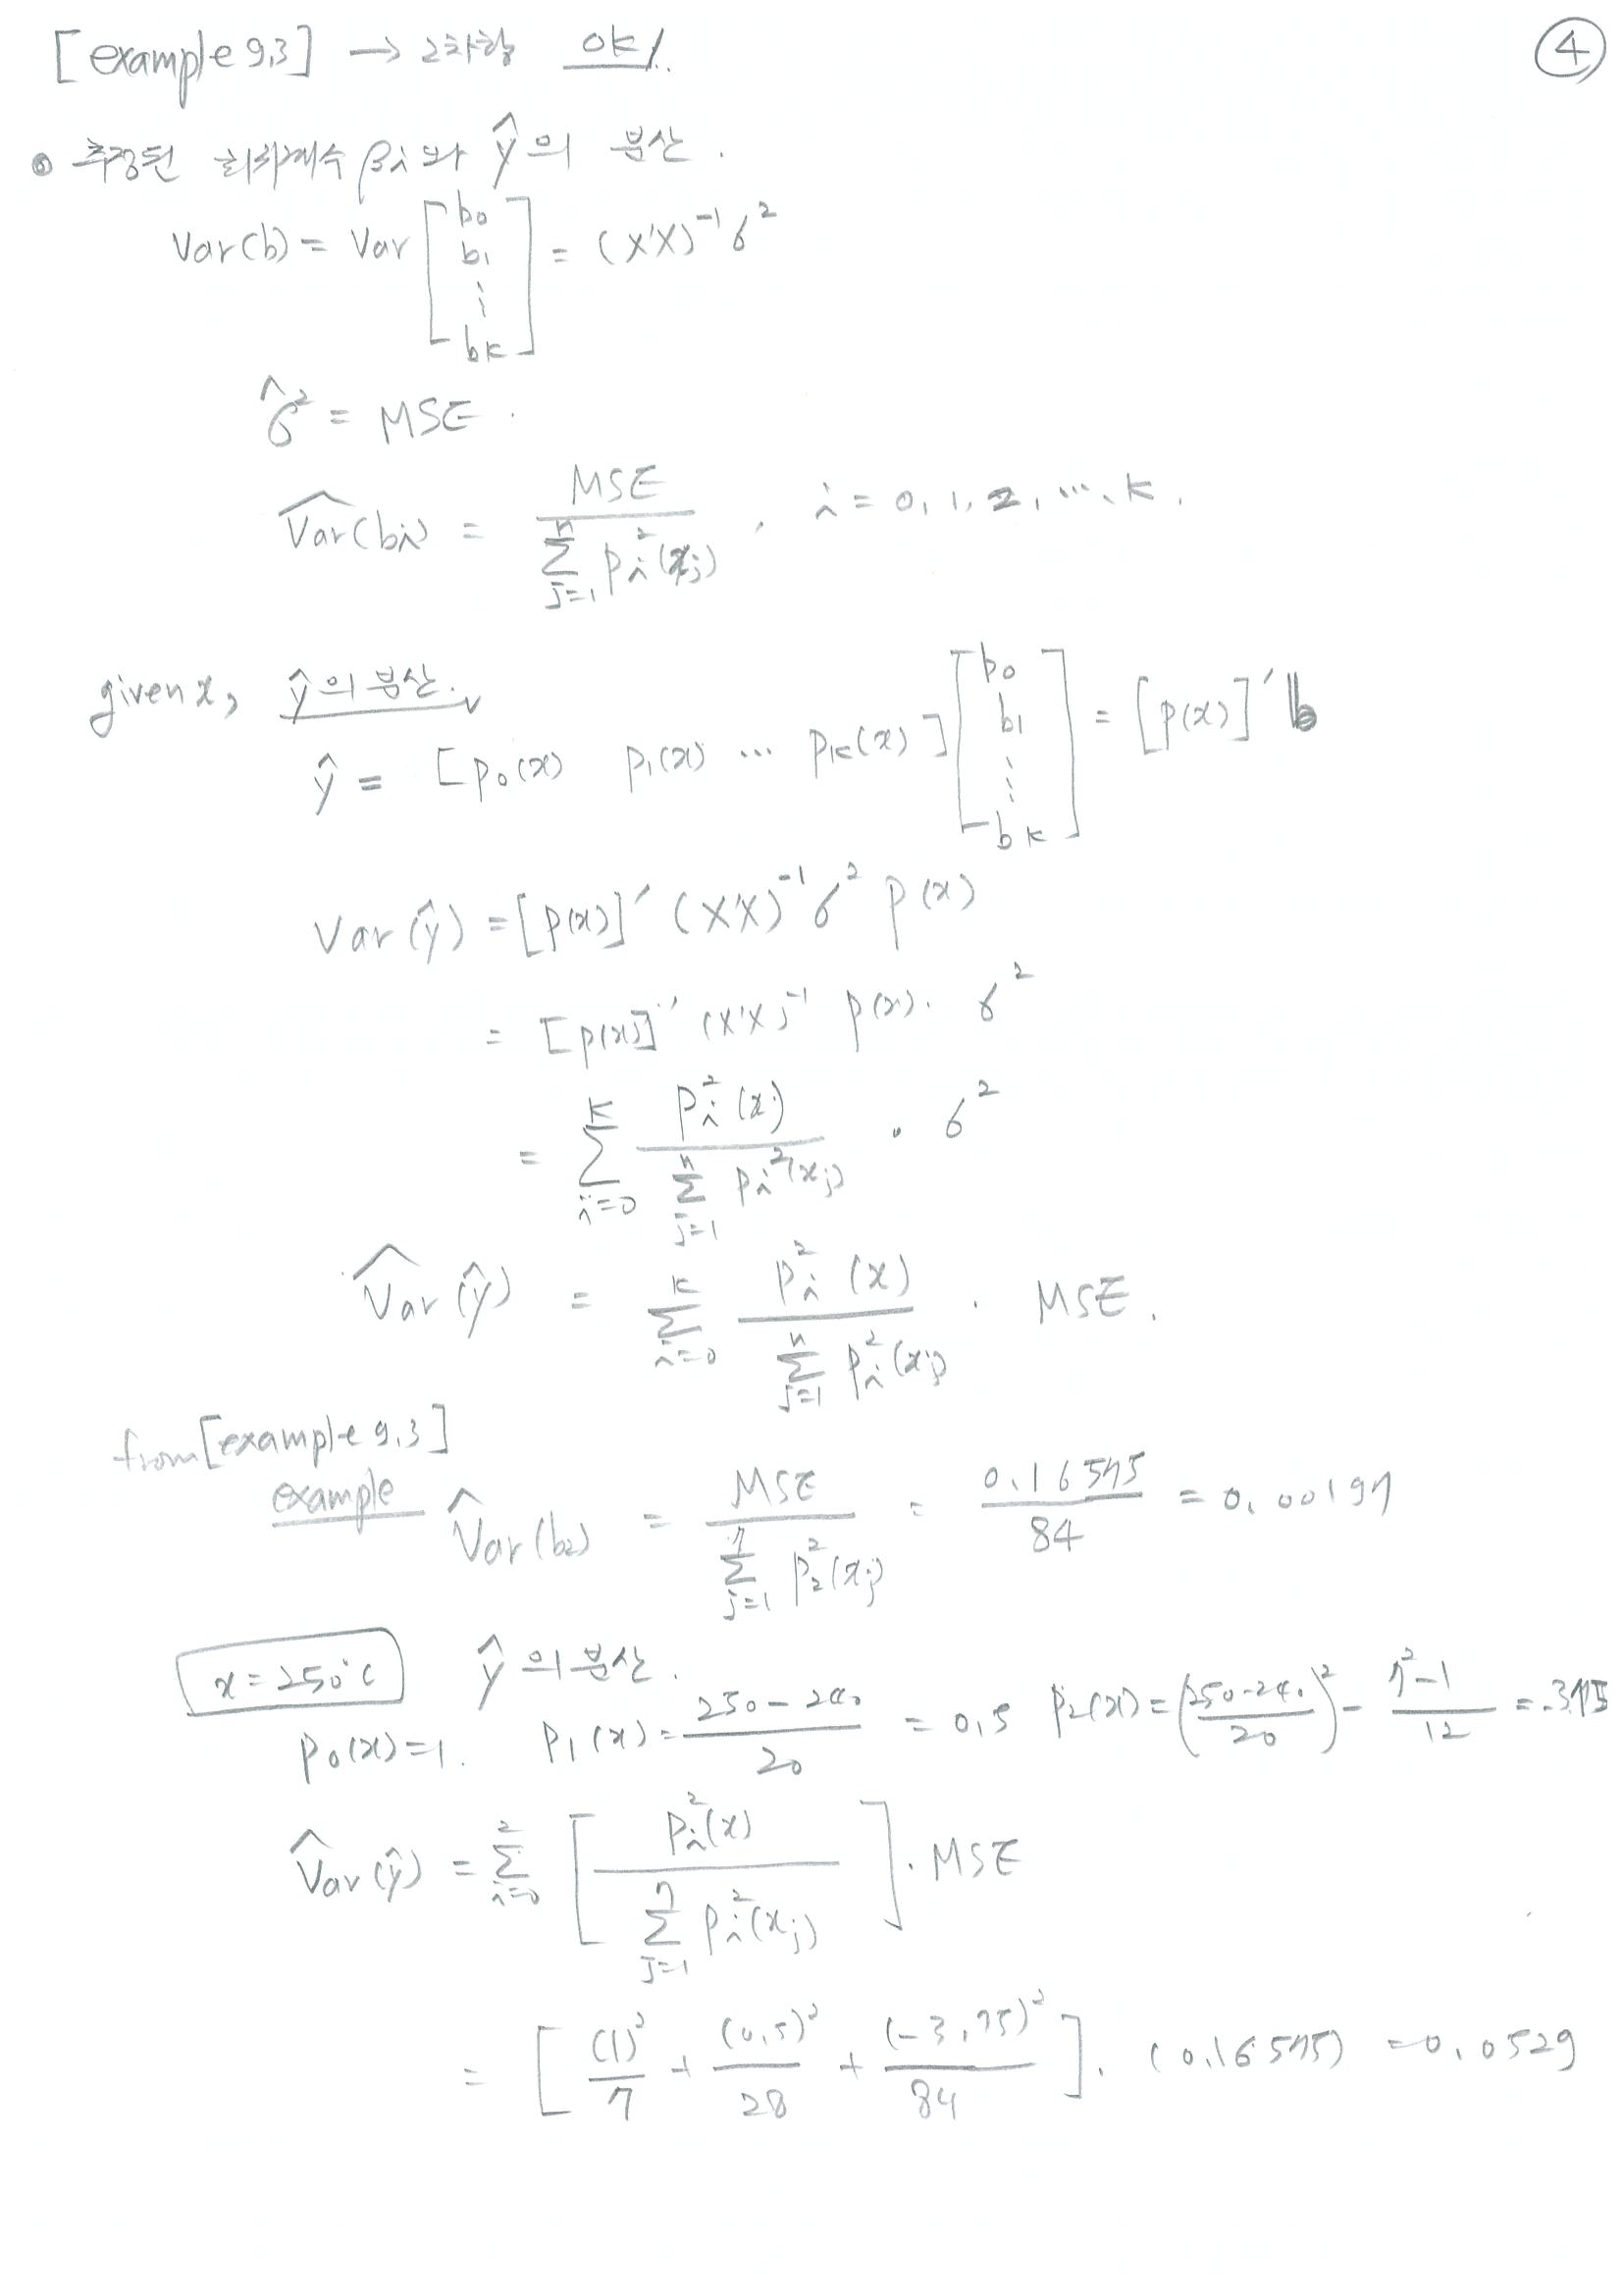 [example 9.3] → 2차항 ok!
④
• 추정된 회귀계수 βi와 ŷ의 분산.
Var(b) = Var [b0 b1 ⋮ bk] = (X'X)⁻¹σ²
σ̂² = MSE.
V̂ar(bi) = MSE / Σ_{j=1}^{n} pi²(xj), i = 0, 1, 2, …, k.
given x, ŷ의 분산.
ŷ = [p0(x) p1(x) … pk(x)] [b0 b1 ⋮ bk] = [p(x)]'b
Var(ŷ) = [p(x)]' (X'X)⁻¹σ² p(x)
= [p(x)]' (X'X)⁻¹ p(x). σ²
= Σ_{i=0}^{k} pi²(x) / Σ_{j=1}^{n} pi²(xj) · σ²
V̂ar(ŷ) = Σ_{i=0}^{k} pi²(x) / Σ_{j=1}^{n} pi²(xj) · MSE.
from [example 9.3]
example V̂ar(b2) = MSE / Σ_{j=1}^{7} p2²(xj) = 0.16575 / 84 = 0.00197
x = 250°C ŷ의 분산.
p0(x) = 1. p1(x) = (250-240)/20 = 0.5 p2(x) = ((250-240)/20)² - (7²-1)/12 = -3.75
V̂ar(ŷ) = Σ_{i=0}^{2} [pi²(x) / Σ_{j=1}^{7} pi²(xj)] · MSE
= [(1)²/7 + (0.5)²/28 + (-3.75)²/84]. (0.16575) = 0.0529